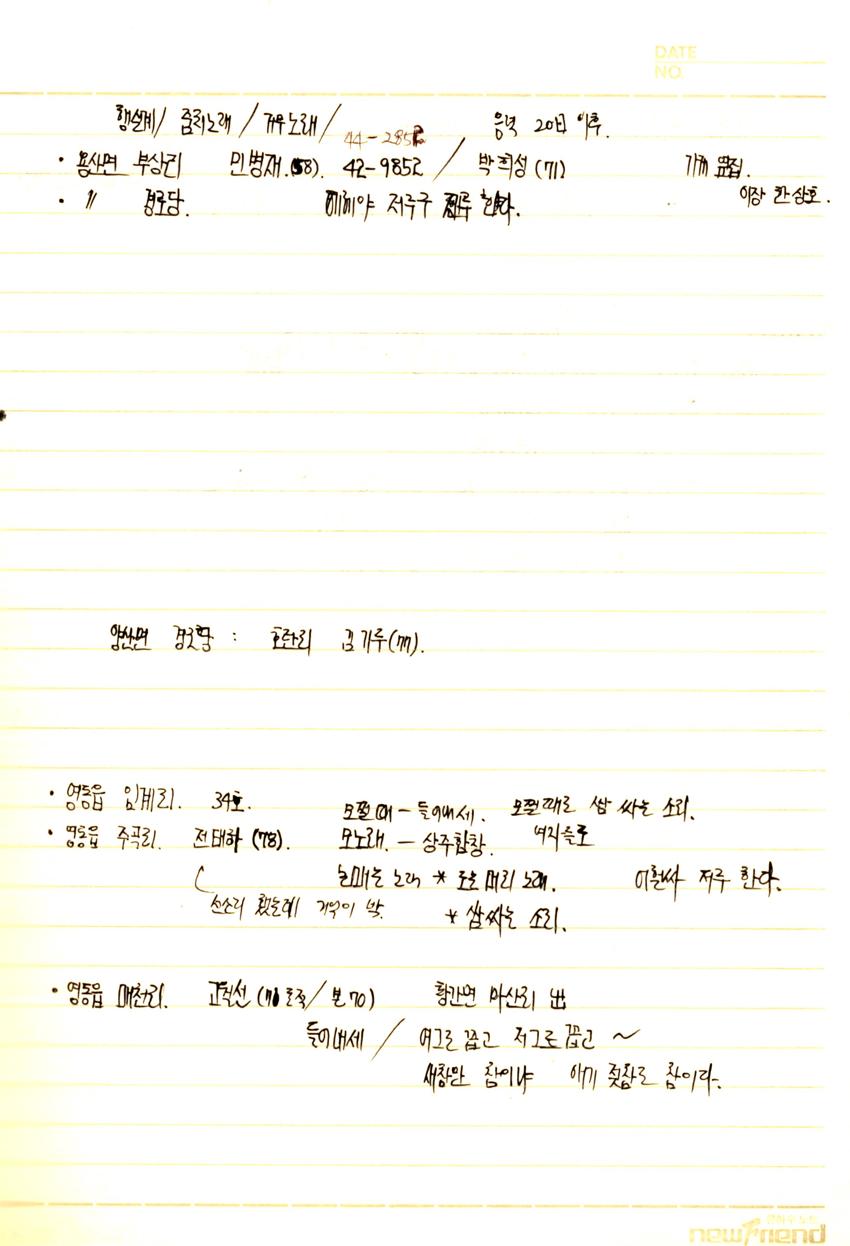 DATE
NO.
행설계/ 줌치노래 / 겨우노래 / 44-2852 음력 20日 이후.
· 용산면 부상리 민병재.(58). 42-9852 / 박희성 (71) 기와 집.
· 〃 경로당. 에헤야 저루구 저루 한다. 이장 한상호.
양산면 경로당 : 호탄리 김기루(77).
· 영동읍 임계리. 34호. 모찔때 - 들어내세. 모찔때로 쌈 싸는 소리.
· 영동읍 주곡리. 전태하 (78). 모노래. - 상주함창. 여자들로
논매는 노래 * 도움 머리 노래. 이천싸 저루 한다.
선소리 했는데 기억이 * 쌈싸는 소리.
· 영동읍 매천리. 고격선 (71 호적/ 본 70) 황간면 마산리 出
들어내세 / 여그로 꼽고 저그로 꼽고 ~
새참만 참이냐 애기 젖참도 참이다.
newfriend